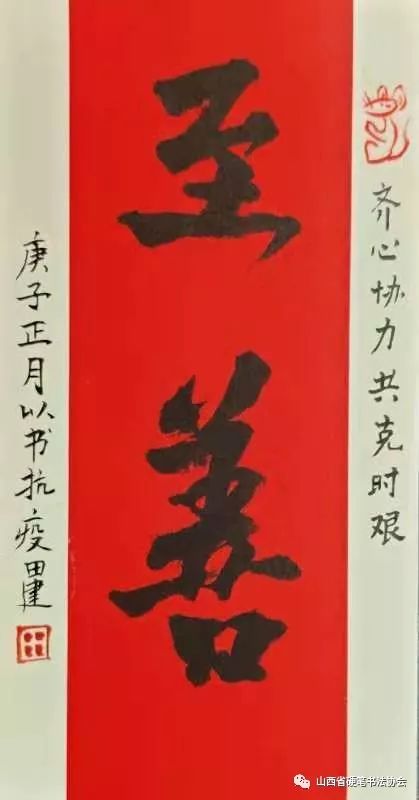 齐心协力共克时艰
至善
庚子正月以书抗疫田建
山西省硬笔书法协会